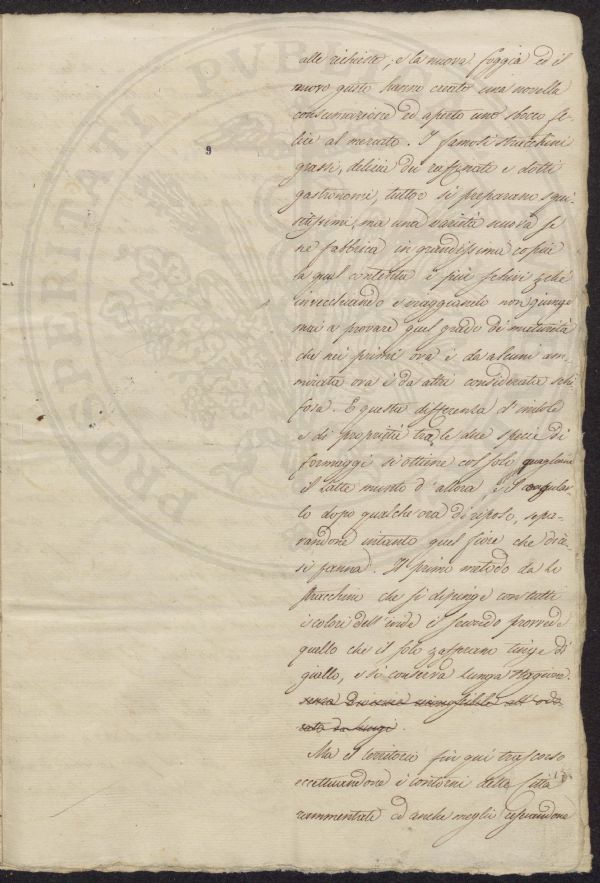 PROSPERITATI PVBLICAE
alle richieste, e la nuova foggia ed il
nuovo gusto hanno creato una novella
consumazione ed aperto uno sbocco fe-
lice al mercato. I famosi stracchini
grassi, delizia dei raffinati e dotti
gastronomi, tuttor si preparano squi-
sitissimi, ma una varietà nuova se
ne fabbrica in grandissima copia
la qual contenta i più schivi
invecchiando e non giunge
mai a provare quel grado di maturità
che nei primi ora è da alcuni am-
mirata ora è da altri considerata schi
fosa. E questa differenza d'indole
e di proprietà tra le due specie di
formaggi si ottiene col solo quagliare
il latte munto d'allora, o
lo dopo qualche ora di riposo, sepa-
randone intanto quel fiore che dice-
si panna. Il primo metodo dà lo
stracchino che si dipinge con tutti
i colori dell'iride il secondo provvede
quello che il solo zafferano tinge di
giallo, e si conserva lunga stagione
senza divenire all'odo
rato da lungi.
Ma il territorio fin qui trascorso
eccettuandone i contorni della Città
rammentate ed anche meglio